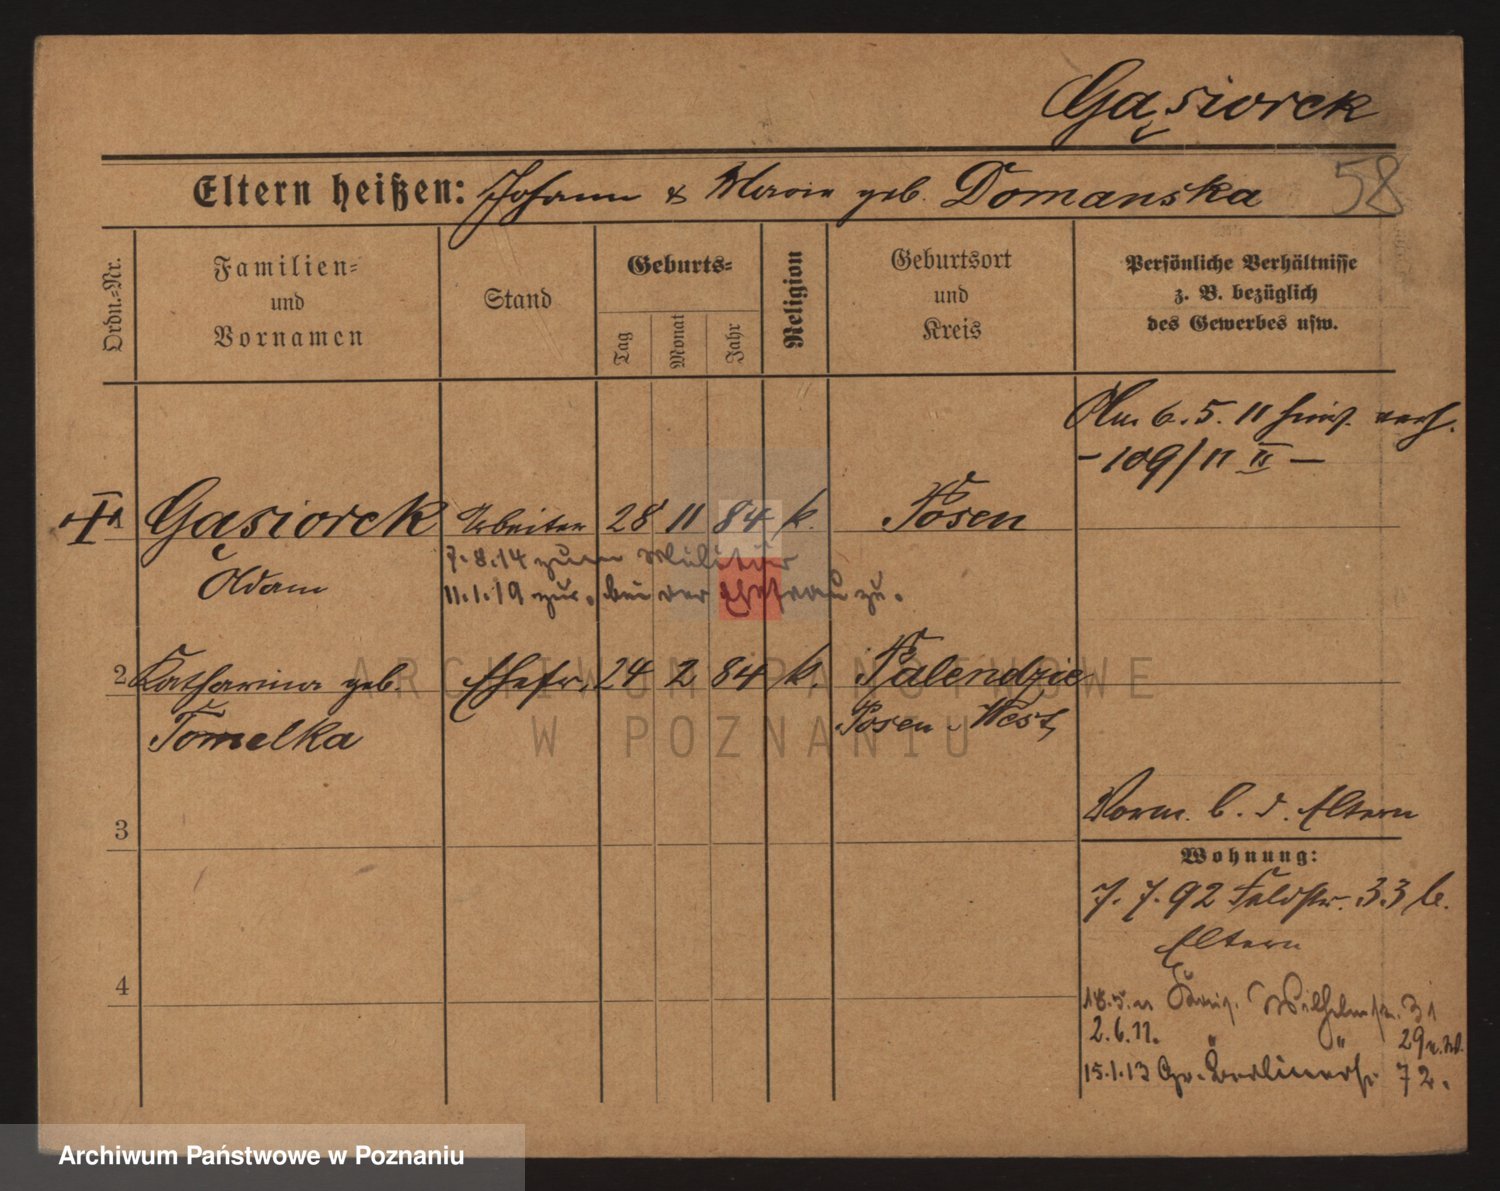 Gąsiorek
58
Eltern heißen: Johann & Marie geb. Domanska
Ordn.=Nr.
Familien=
und
Vornamen
Stand
Geburts=
Tag
Monat
Jahr
Religion
Geburtsort
und
Kreis
Persönliche Verhältnisse
z. B. bezüglich
des Gewerbes usw.
6. 5. 11
- 109/11 II -
1 Gąsiorek Arbeiter 28 11 84 k. Posen
Adam
7.8.14 zum Militär
11.1.19 zur. bei der Ehefrau zu.
2 Katharina geb. Ehefr. 24 2 84 k. Palendzie
Tomelka Posen-West
3
Vorm. b. d. Eltern
Wohnung:
7. 7. 92 Feldstr. 33 b.
Eltern
4
18.5.11 Wilhelmstr. 31
2.6.11. " " 29
15.1.13 Gr. Berlinerstr. 72.
ARCHIWUM PAŃSTWOWE
W POZNANIU
Archiwum Państwowe w Poznaniu